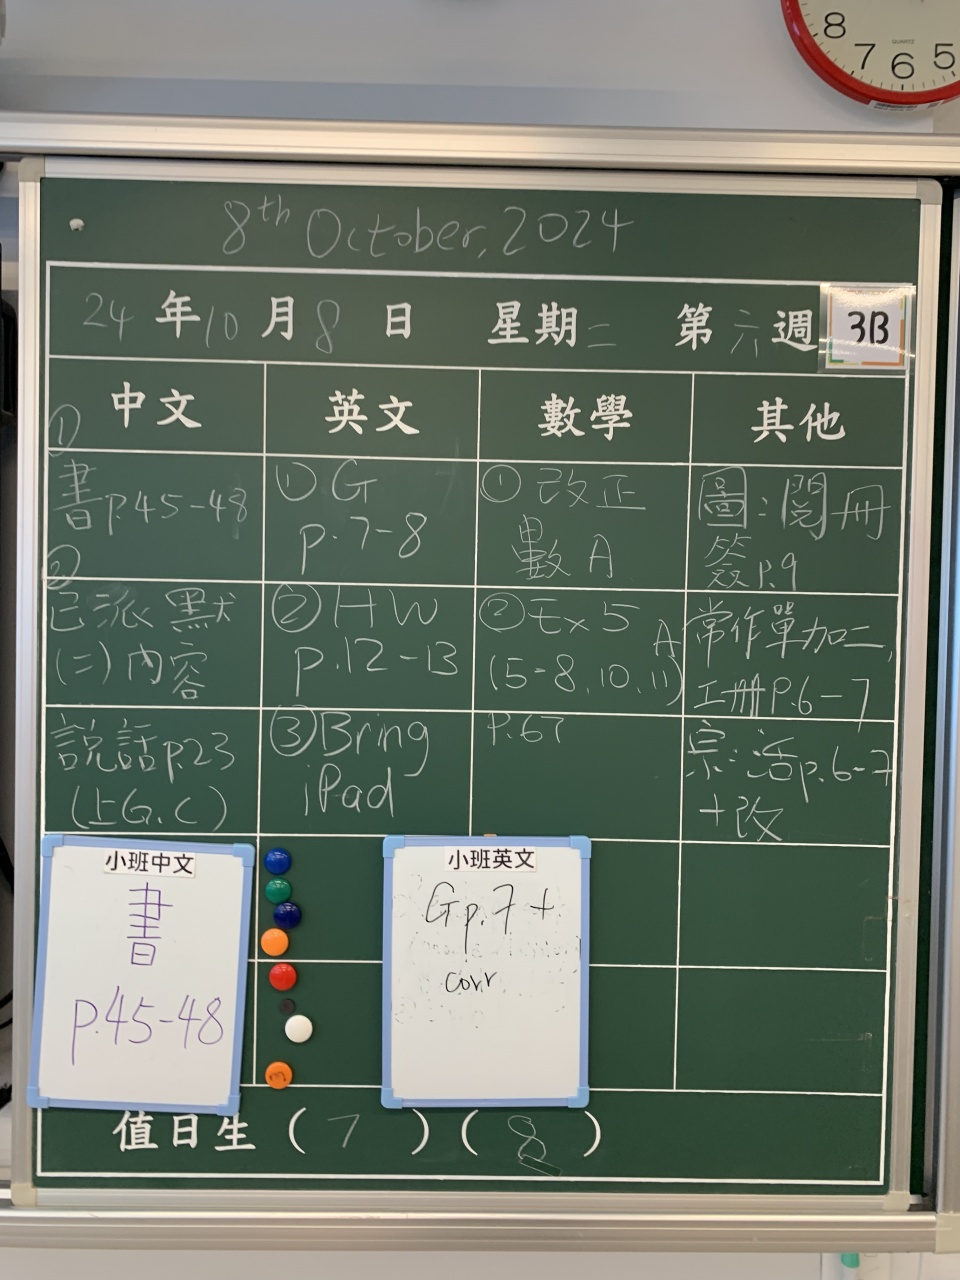 8
7
6
5
QUARTZ
8th October, 2024
24 年 10 月 8 日 星期二 第六週
3B
中文
英文
數學
其他
①
書p.45-48
②
已派默
(二)內容
說話p.23
(上G.C)
① G
p.7-8
② HW
p.12-13
③ Bring
iPad
① 改正
數A
② Ex 5A
(5-8,10,11)
P.67
圖:閱冊
簽p.9
常作單加二,
工冊P.6-7
宗:活p.6-7
+改
小班中文
書
p.45-48
小班英文
G p.7 +
corr
值日生 ( 7 ) ( 8 )